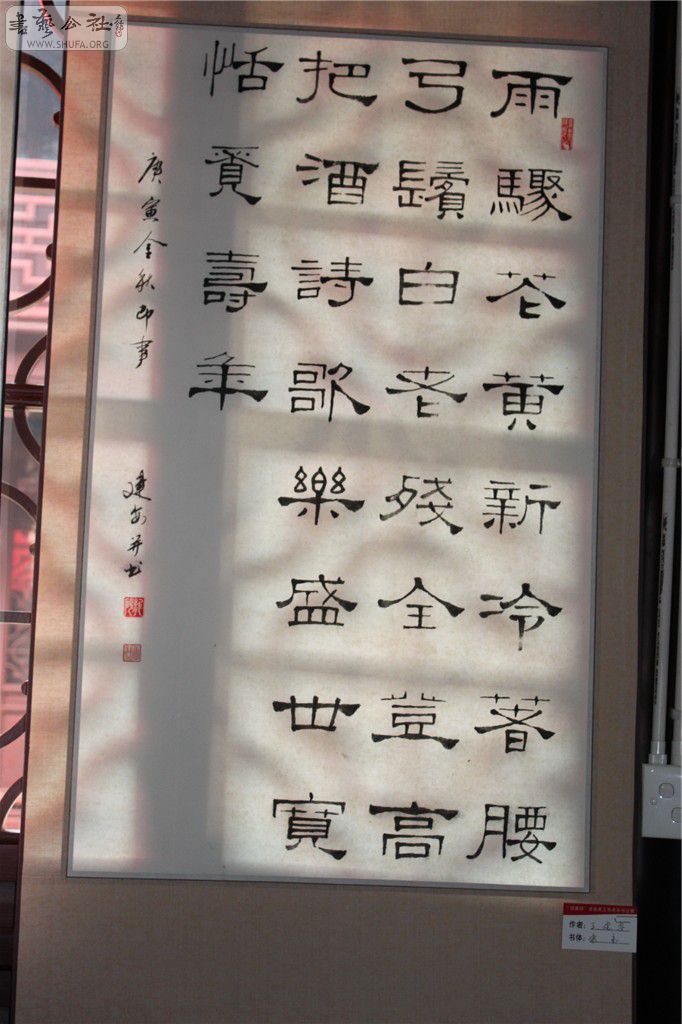 書藝公社
WWW.SHUFA.ORG
雨驟花黃新冷著腰
弓鬢白老殘全豈高
把酒詩歌樂盛世寬
恬覓壽年
庚寅金秋即事
建安并书
作者:
书体: 隶书